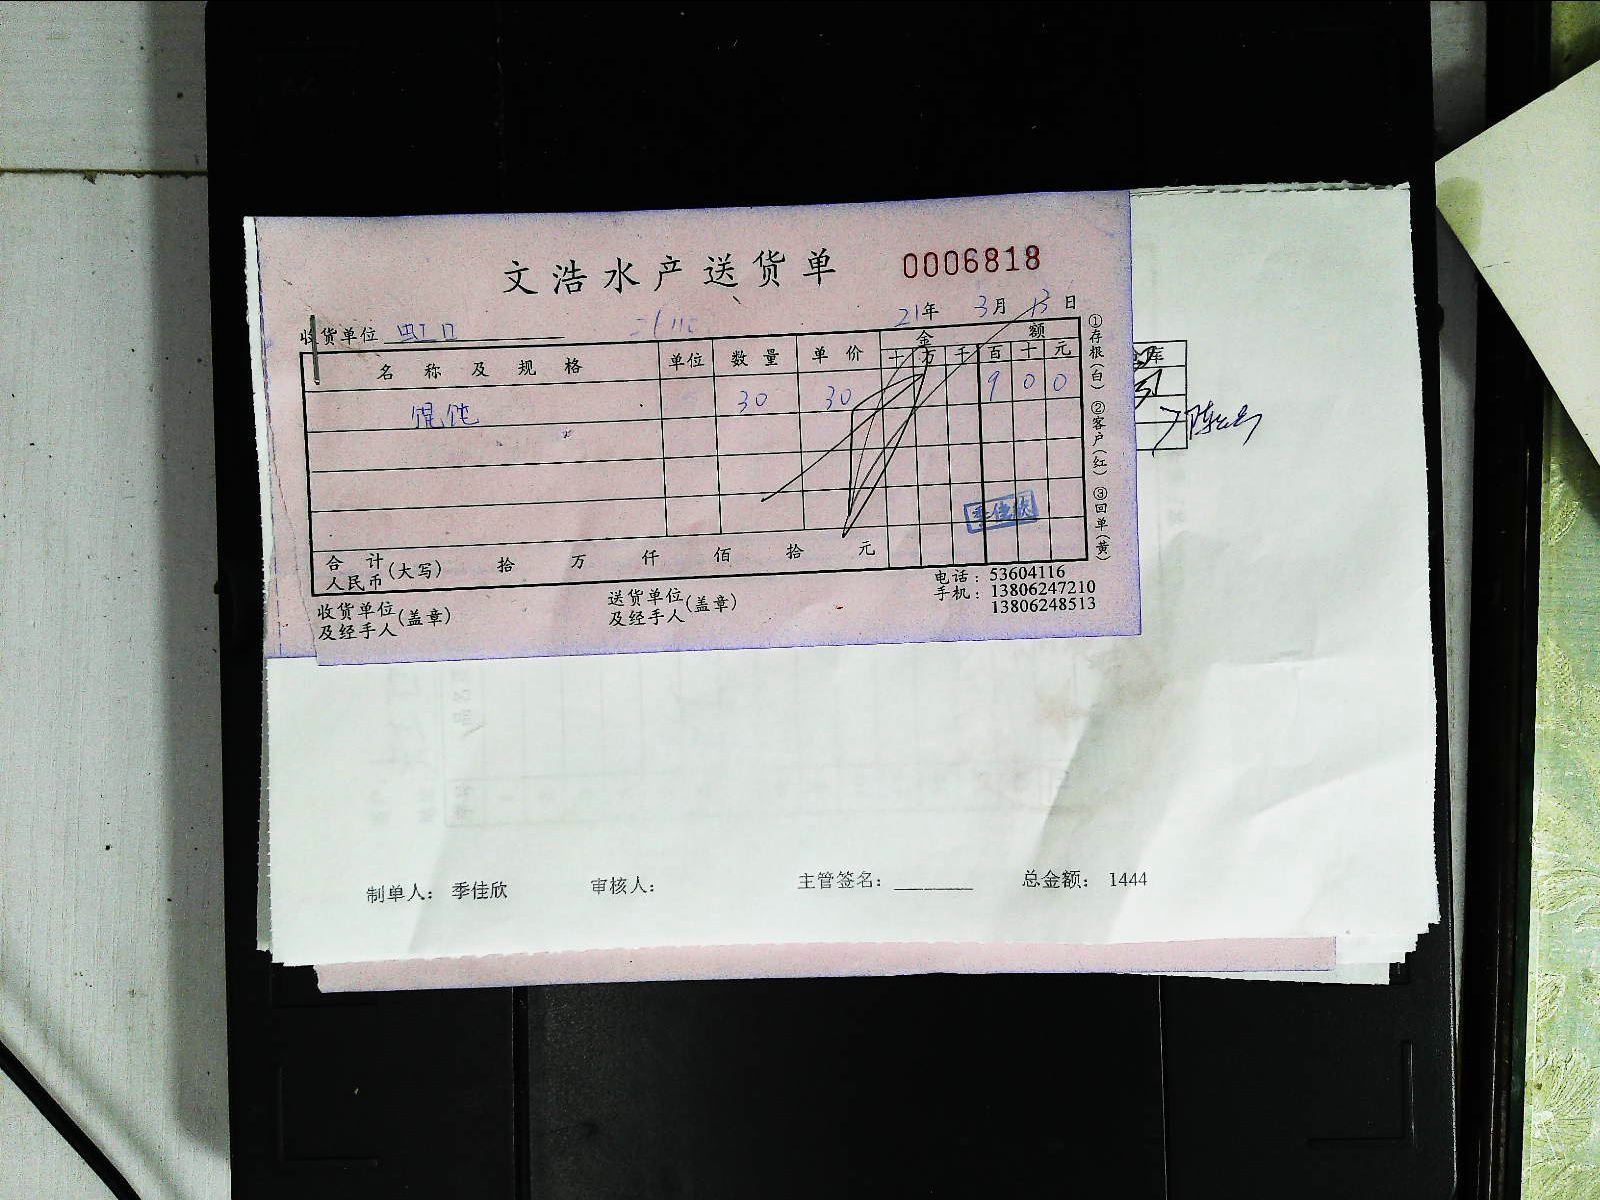 文浩水产送货单 0006818
21年 3月 13日
收货单位 虹口
名称及规格 单位 数量 单价 金额
十 万 千 百 十 元
馄饨 30 30 9 0 0
季佳欣
合计 人民币(大写) 拾 万 仟 佰 拾 元
收货单位及经手人(盖章) 送货单位及经手人(盖章)
电话:53604116
手机:13806247210
13806248513
①存根(白) ②客户(红) ③回单(黄)
库
制单人: 季佳欣 审核人: 主管签名: 总金额: 1444